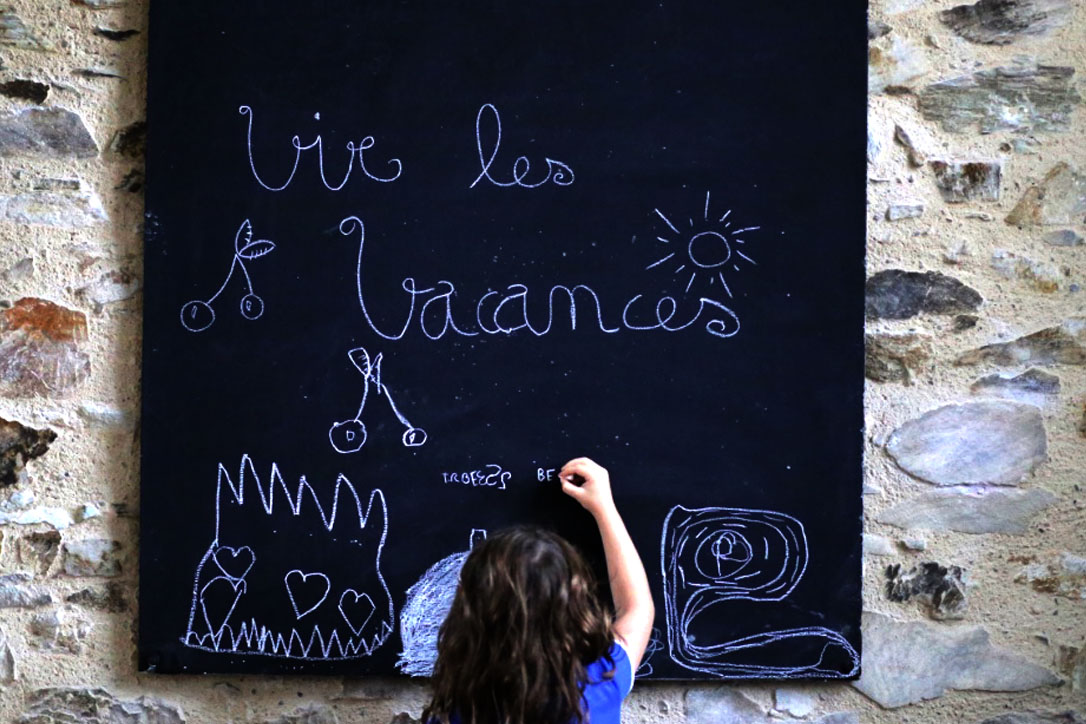 Vive les
Vacances
BE
R